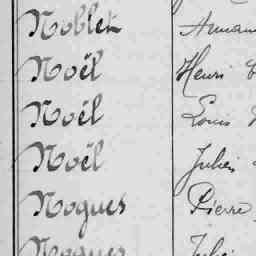 Noblet
Noël Henri
Noël Louis
Noël Julien
Nogues Pierre
Nogues